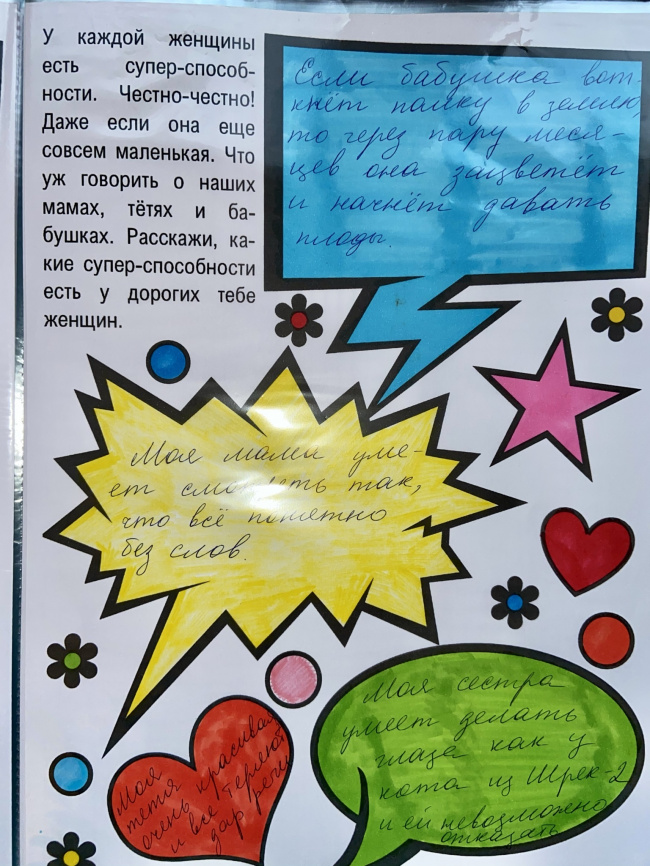 У каждой женщины
есть супер-способ-
ности. Честно-честно!
Даже если она еще
совсем маленькая. Что
уж говорить о наших
мамах, тётях и ба-
бушках. Расскажи, ка-
кие супер-способности
есть у дорогих тебе
женщин.
Если бабушка вот-
кнёт палку в землю,
то через пару меся-
цев она зацветёт
и начнёт давать
плоды.
Моя мама уме-
ет смотреть так,
что всё понятно
без слов.
Моя
тетя
очень красивая
и все теряют
дар речи
Моя сестра
умеет делать
глаза как у
кота из Шрек-2
и ей невозможно
отказать